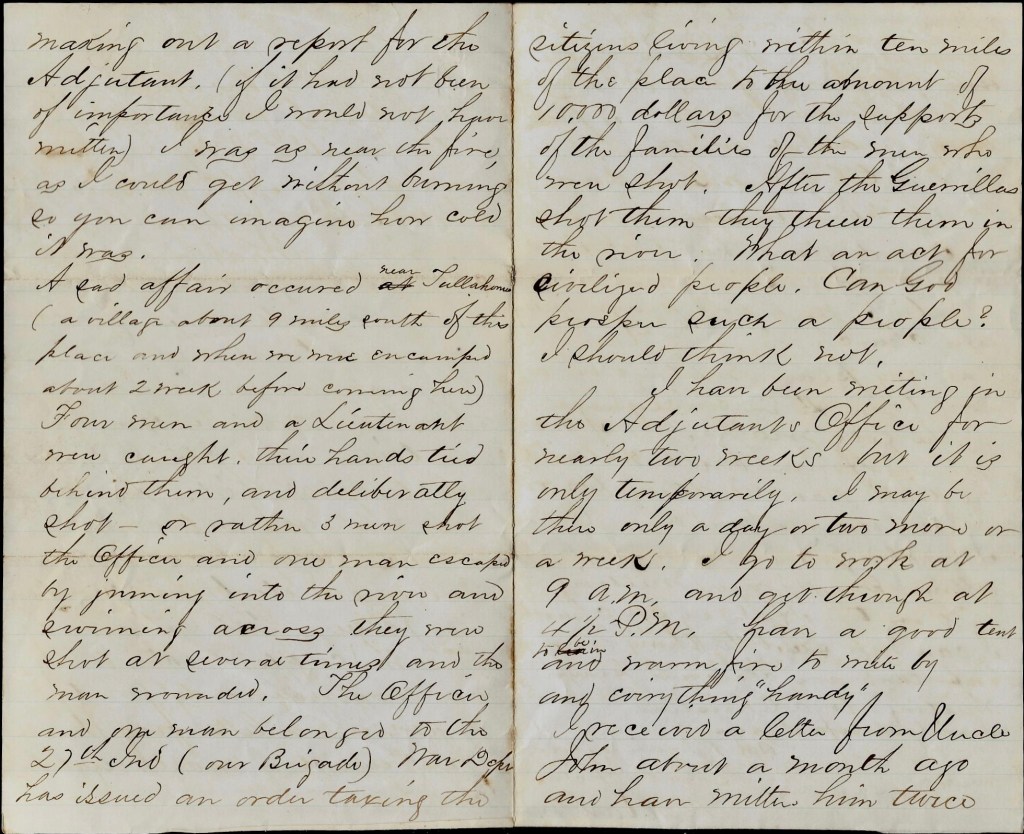 making out a report for the
Adjutant. (if it had not been
of importance I would not have
written) I was as near the fire,
as I could get without burning
so you can imagine how cold
it was.
A sad affair occured at near Tullahoma
( a village about 9 miles south of this
place and where we were encamped
about 2 week before coming here)
Four men and a Lieutenant
were caught. their hands tied
behind them, and deliberatly
shot – or rather 3 men shot
the Officer and one man escaped
by juming into the river and
swiming across they were
shot at several times and the
man wounded. The Officer
and one man belonged to the
27th Ind ( our Brigade) War Dept
has issued an order taxing the
citizens living within ten miles
of the place to the amount of
10,000 dollars for the supports
of the families of the men who
were shot. After the Guerrillas
shot them they threw them in
the river. What an act for
civilized people. Can God
prosper such a people?
I should think not.
I have been writing in
the Adjutants Office for
nearly two weeks but it is
only temporarily. I may be
there only a day or two more or
a week. I go to work at
9 a.m. and get through at
4 1/2 P.M. have a good tent
to be in
and warm fire to write by
and everything "handy"
I received a letter from Uncle
John about a month ago
and have written him twice